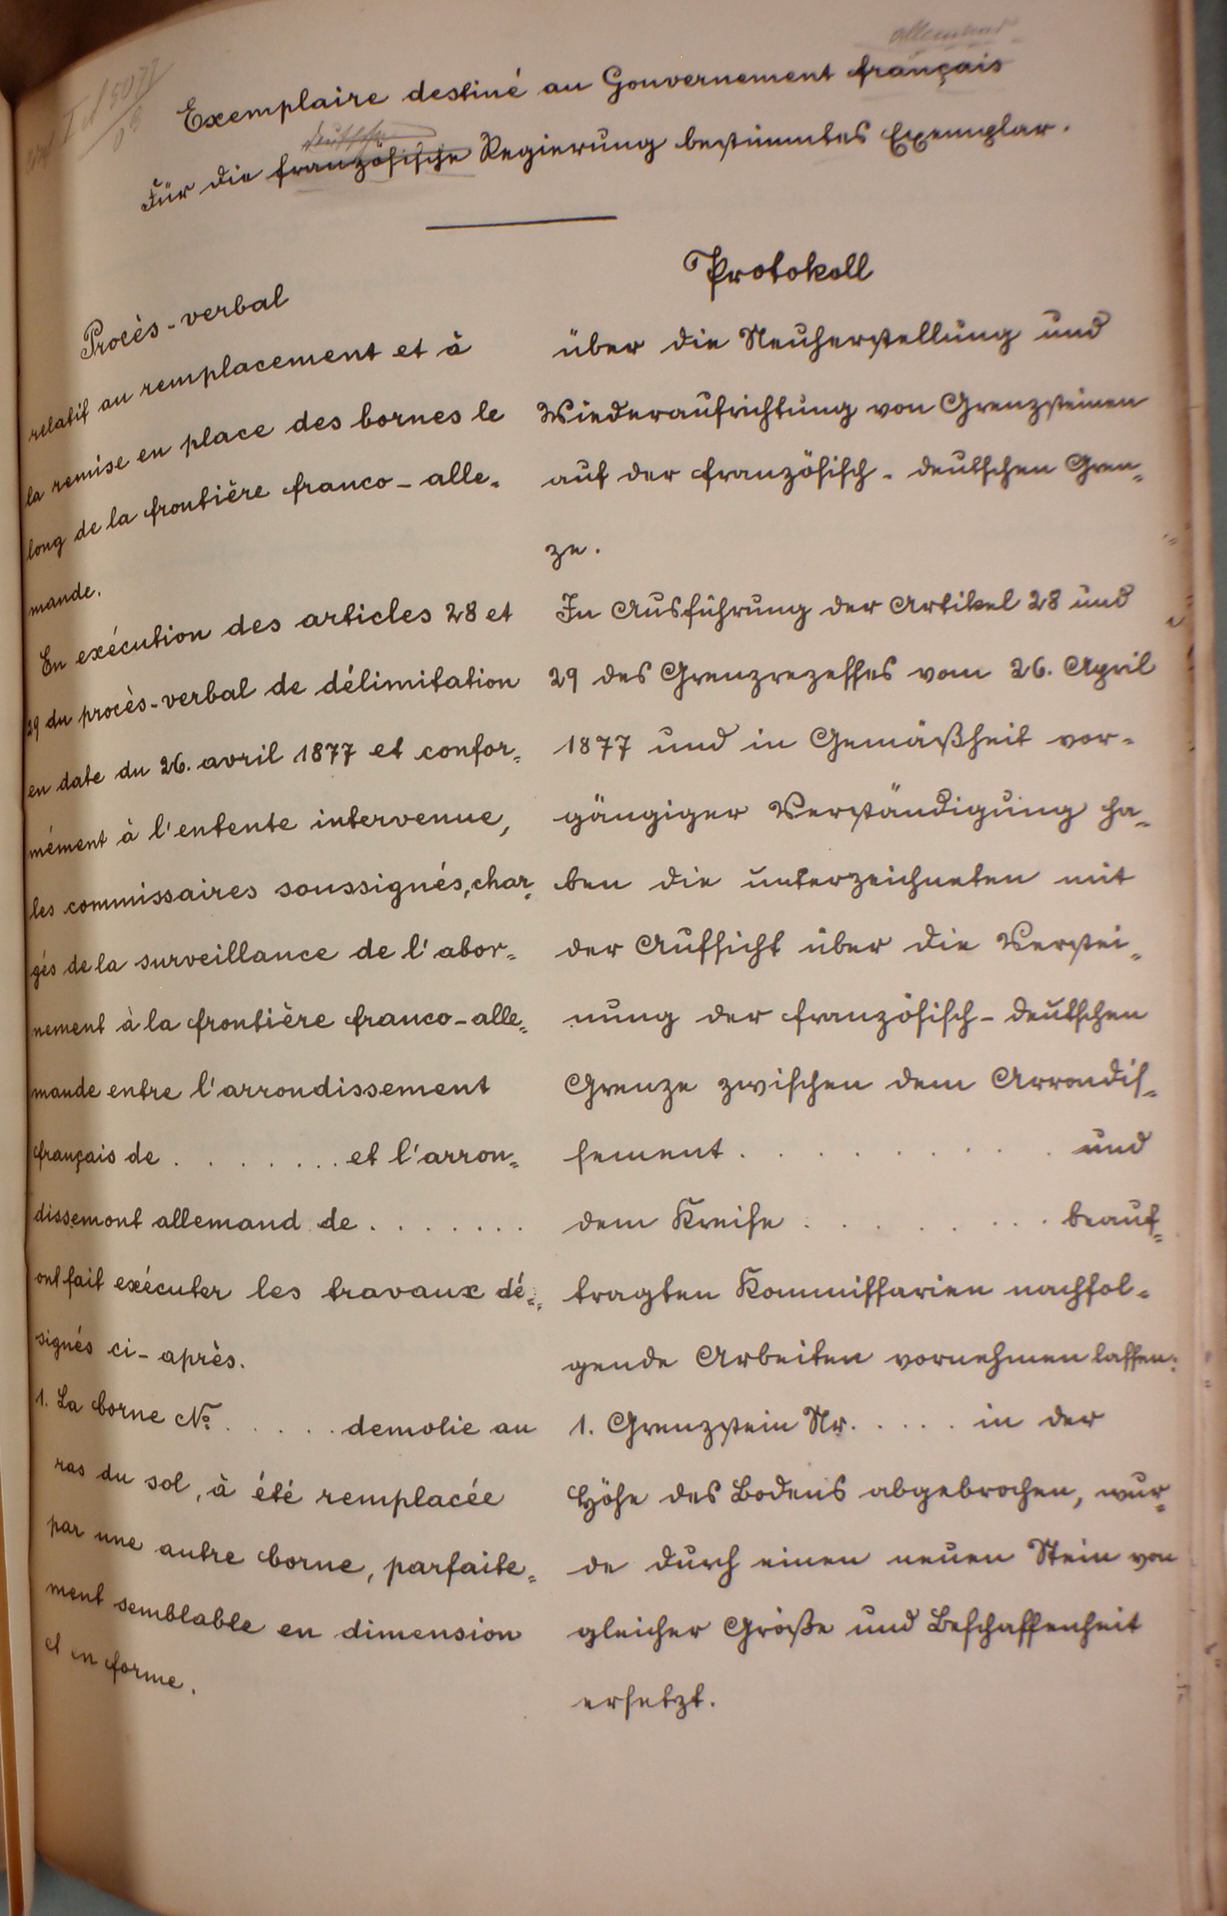 allemand
Exemplaire destiné au Gouvernement français
deutsche
Für die französische Regierung bestimmtes Exemplar.
Procès-verbal
relatif au remplacement et à
la remise en place des bornes le
long de la frontière franco-alle=
mande.
En exécution des articles 28 et
29 du procès-verbal de délimitation
en date du 26. avril 1877 et confor=
mément à l'entente intervenue,
les commissaires soussignés, char=
gés de la surveillance de l'abor=
nement à la frontière franco-alle=
mande entre l'arrondissement
français de . . . . . . . et l'arron=
dissement allemand de . . . . . . .
ont fait exécuter les travaux dé=
signés ci-après.
1. La borne No. . . . . . demolie au
ras du sol, à été remplacée
par une autre borne, parfaite=
ment semblable en dimension
et en forme.
Protokoll
über die Neuherstellung und
Wiederaufrichtung von Grenzsteinen
auf der französisch-deutschen Gren=
ze.
In Ausführung der Artikel 28 und
29 des Grenzrezesses vom 26. April
1877 und in Gemäßheit vor=
gängiger Verständigung ha=
ben die unterzeichneten mit
der Aufsicht über die Verstei=
nung der französisch-deutschen
Grenze zwischen dem Arrondis=
sement . . . . . . . . . . und
dem Kreise . . . . . . . . . beauf=
tragten Kommissarien nachfol=
gende Arbeiten vornehmen lassen:
1. Grenzstein Nr. . . . . . in der
Höhe des Bodens abgebrochen, wur=
de durch einen neuen Stein von
gleicher Größe und Beschaffenheit
ersetzt.